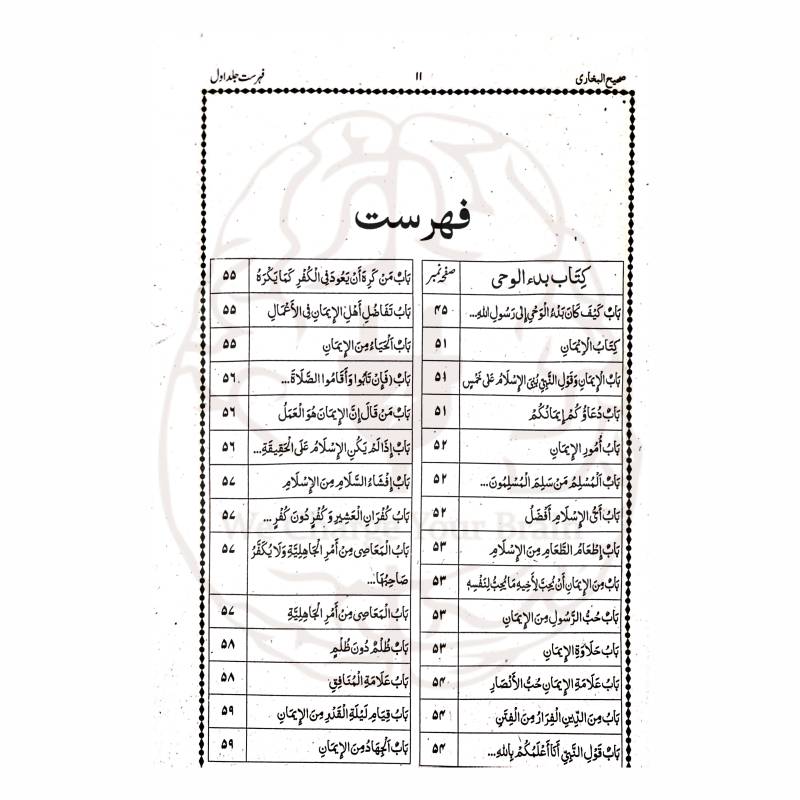 صحیح البخاری ۱۱ فہرست جلد اول
فہرست
کِتَاب بدء الوحی صفحہ نمبر
بَابُ کَیْفَ کَانَ بَدْءُ الْوَحْیِ إِلَی رَسُولِ اللهِ... ۴۵
کِتَابُ الْإِیْمَانِ ۵۱
بَابُ الْإِیمَانِ وَقَوْلِ النَّبِیِّ بُنِیَ الْإِسْلَامُ عَلَی خَمْسٍ ۵۱
بَابُ دُعَاؤُکُمْ إِیمَانُکُمْ ۵۱
بَابُ أُمُورِ الْإِیمَانِ ۵۲
بَابٌ الْمُسْلِمُ مَنْ سَلِمَ الْمُسْلِمُونَ... ۵۲
بَابٌ أَیُّ الْإِسْلَامِ أَفْضَلُ ۵۲
بَابٌ إِطْعَامُ الطَّعَامِ مِنَ الْإِسْلَامِ ۵۳
بَابٌ مِنَ الْإِیمَانِ أَنْ یُحِبَّ لِأَخِیهِ مَا یُحِبُّ لِنَفْسِهِ ۵۳
بَابٌ حُبُّ الرَّسُولِ مِنَ الْإِیمَانِ ۵۳
بَابُ حَلَاوَةِ الْإِیمَانِ ۵۳
بَابٌ عَلَامَةِ الْإِیمَانِ حُبُّ الْأَنْصَارِ ۵۴
بَابٌ مِنَ الدِّینِ الْفِرَارُ مِنَ الْفِتَنِ ۵۴
بَابُ قَوْلِ النَّبِیِّ أَنَا أَعْلَمُکُمْ بِاللهِ... ۵۴
بَابُ مَنْ کَرِهَ أَنْ یَعُودَ فِی الْکُفْرِ کَمَا یَکْرَهُ ۵۵
بَابُ تَفَاضُلِ أَهْلِ الْإِیمَانِ فِی الْأَعْمَالِ ۵۵
بَابٌ الْحَیَاءُ مِنَ الْإِیمَانِ ۵۵
بَابُ (فَإِنْ تَابُوا وَأَقَامُوا الصَّلَاةَ... ۵۶
بَابُ مَنْ قَالَ إِنَّ الْإِیمَانَ هُوَ الْعَمَلُ ۵۶
بَابٌ إِذَا لَمْ یَکُنِ الْإِسْلَامُ عَلَی الْحَقِیقَةِ... ۵۶
بَابٌ إِفْشَاءُ السَّلَامِ مِنَ الْإِسْلَامِ ۵۷
بَابُ کُفْرَانِ الْعَشِیرِ وَکُفْرٍ دُونَ کُفْرٍ... ۵۷
بَابٌ الْمَعَاصِی مِنْ أَمْرِ الْجَاهِلِیَّةِ وَلَا یُکَفَّرُ ۵۷
صَاحِبُهَا...
بَابُ الْمَعَاصِی مِنْ أَمْرِ الْجَاهِلِیَّةِ ۵۷
بَابٌ ظُلْمٌ دُونَ ظُلْمٍ ۵۸
بَابُ عَلَامَةِ الْمُنَافِقِ ۵۸
بَابُ قِیَامِ لَیْلَةِ الْقَدْرِ مِنَ الْإِیمَانِ ۵۹
بَابٌ الْجِهَادُ مِنَ الْإِیمَانِ ۵۹